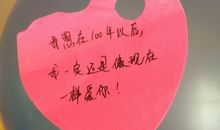 我想在100年以后,
我一定还是像现在
一样爱你!